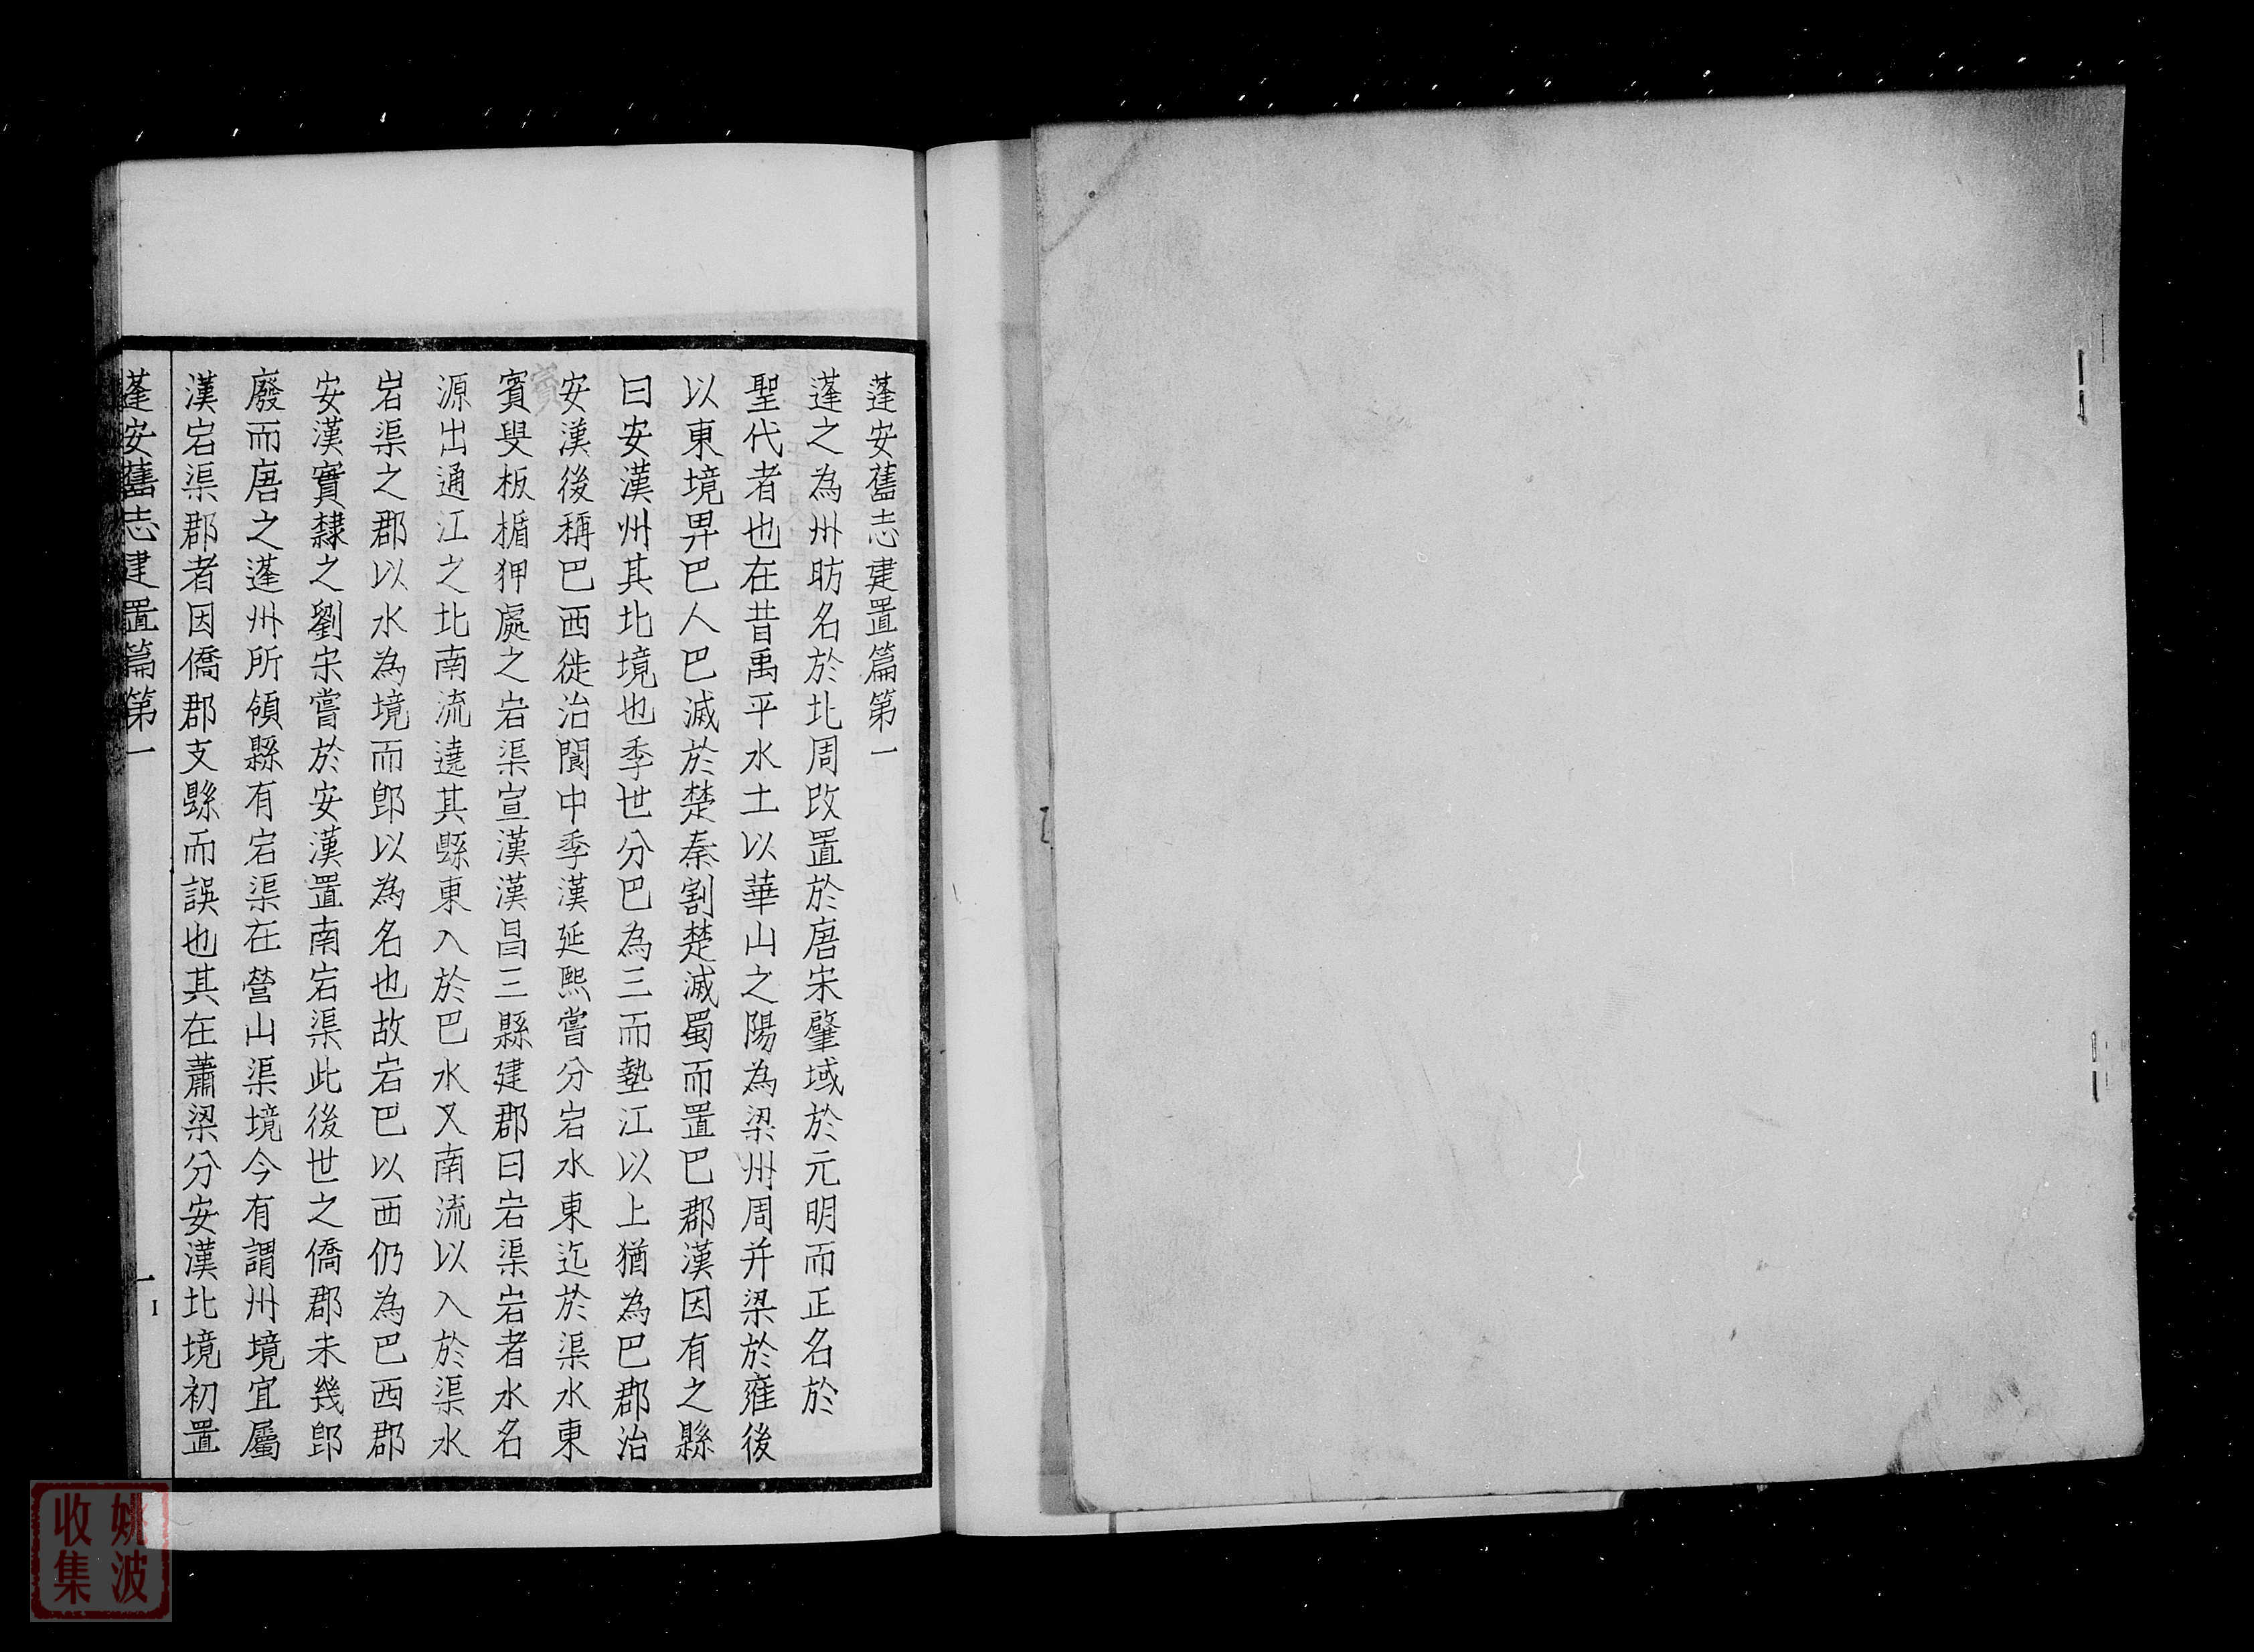 蓬安舊志建置篇第一
蓬之為州昉名於北周改置於唐宋肇域於元明而正名於
聖代者也在昔禹平水土以華山之陽為梁州周并梁於雍後
以東境畀巴人巴滅於楚秦割楚滅蜀而置巴郡漢因有之縣
曰安漢州其北境也季世分巴為三而墊江以上猶為巴郡治
安漢後稱巴西徙治閬中季漢延熙嘗分宕水東迄於渠水東
賓叟板楯狎處之宕渠宣漢漢昌三縣建郡曰宕渠宕者水名
源出通江之北南流遶其縣東入於巴水又南流以入於渠水
宕渠之郡以水為境而即以為名也故宕巴以西仍為巴西郡
安漢實隸之劉宋嘗於安漢置南宕渠此後世之僑郡未幾即
廢而唐之蓬州所領縣有宕渠在營山渠境今有謂州境宜屬
漢宕渠郡者因僑郡支縣而誤也其在蕭梁分安漢北境初置
蓬安舊志建置篇第一
一
1
姚波
收集